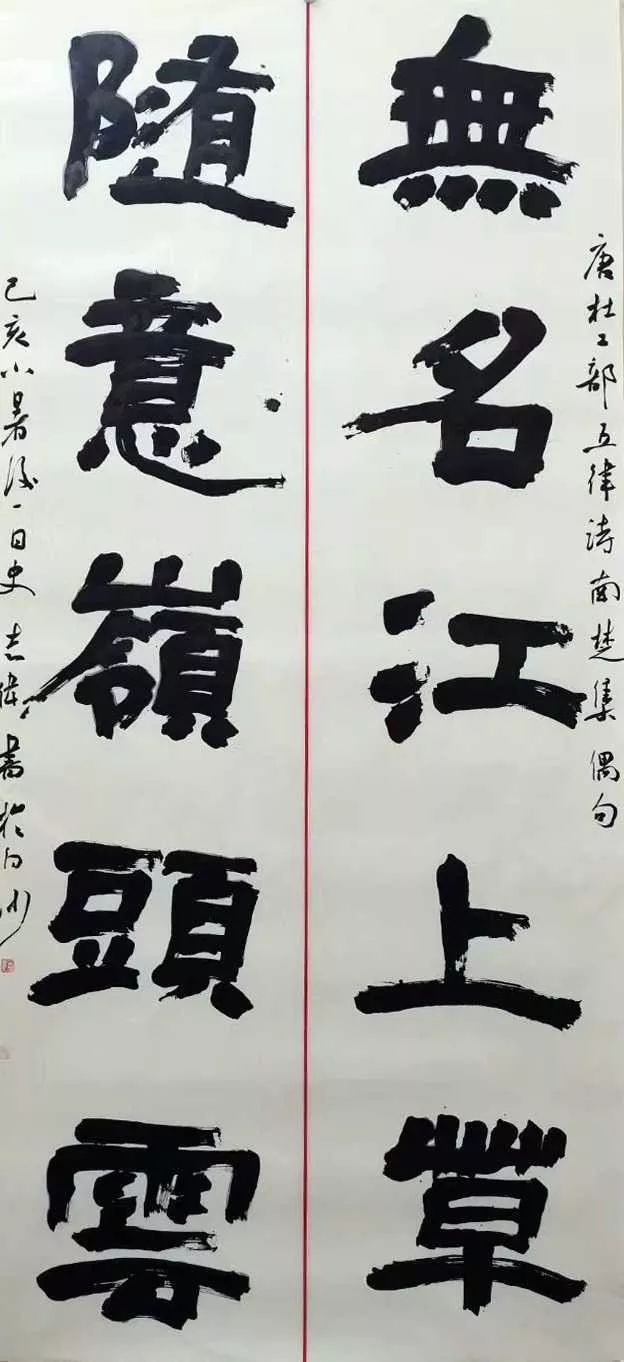 唐杜工部五律詩南楚集偶句
無名江上草
隨意嶺頭雲
己亥小暑後一日史志偉書於白沙